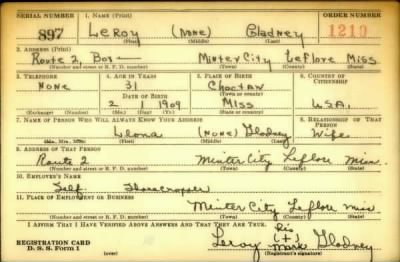 SERIAL NUMBER 1. NAME (Print) ORDER NUMBER
897 LeRoy (NONE) Gladney 1210
(First) (Middle) (Last)
2. ADDRESS (Print)
Route 2, Box — Minter City Leflore Miss
(Number and street or R. F. D. number) (Town) (County) (State)
3. TELEPHONE 4. AGE IN YEARS 5. PLACE OF BIRTH 6. COUNTRY OF CITIZENSHIP
None 31 Choctaw
(Town or county)
DATE OF BIRTH
2 1 1909 Miss U.S.A.
(Mo.) (Day) (Yr.) (State or country)
7. NAME OF PERSON WHO WILL ALWAYS KNOW YOUR ADDRESS 8. RELATIONSHIP OF THAT PERSON
Leona (None) Gladney Wife
(Mr., Mrs., Miss) (First) (Middle) (Last)
9. ADDRESS OF THAT PERSON
Route 2 Minter City Leflore Miss.
(Number and street or R. F. D. number) (Town) (County) (State)
10. EMPLOYER'S NAME
Self. Sharecropper
11. PLACE OF EMPLOYMENT OR BUSINESS
Minter City Leflore Miss
(Number and street or R. F. D. number) (Town) (County) (State)
I AFFIRM THAT I HAVE VERIFIED ABOVE ANSWERS AND THAT THEY ARE TRUE.
REGISTRATION CARD
D. S. S. Form 1 (over) Leroy his (+) mark Gladney
(Registrant's signature)